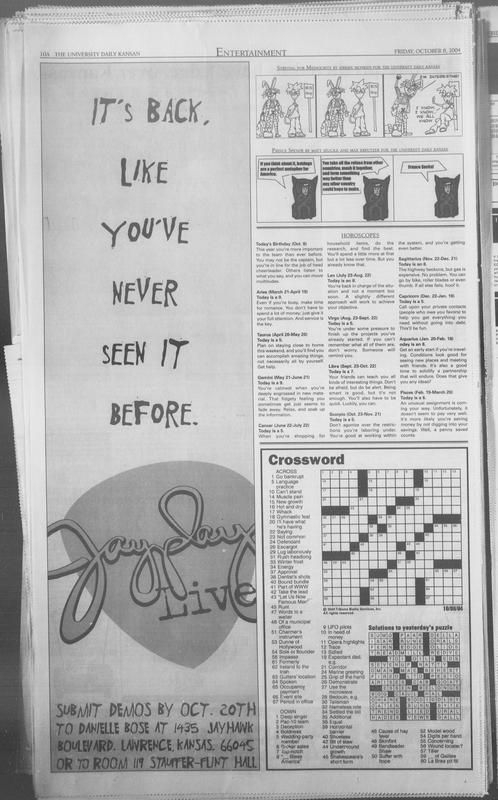 10A THE UNIVERSITY DAILY KANSAN
ENTERTAINMENT
FRIDAY, OCTOBER 8, 2004
IT'S BACK,
LIKE
YOU'VE
NEVER
SEEN IT
BEFORE.
Jayplay
Live
SUBMIT DEMOS BY OCT. 20TH
TO DANIELLE BOSE AT 1435 JAYHAWK
BOULEVARD. LAWRENCE, KANSAS. 66045
OR TO ROOM 119 STAUFFER-FLINT HALL
I KNOW,
I KNOW,
WE ALL
KNOW
If you think about it, hotdogs
are a perfect metaphor for
America.
You take all the refuse from other
countries, mash it together,
and form something
way better than
any other country
could hope to make.
France Sucks!
HOROSCOPES
Today's Birthday (Oct. 8)
This year you're more important
to the team than ever before.
You may not be the captain, but
you're in line for the job of head
cheerleader. Others listen to
what you say, and you can move
multitudes.
Aries (March 21-April 19)
Today is a 9.
Even if you're busy, make time
for romance. You don't have to
spend a lot of money; just give it
your full attention. And service is
the key.
Taurus (April 20-May 20)
Today is a 5.
Plan on staying close to home
this weekend, and you'll find you
can accomplish amazing things,
not necessarily all by yourself.
Get help.
Gemini (May 21-June 21)
Today is a 9.
You're calmest when you're
deeply engrossed in new mate-
rial. That fidgety feeling you
sometimes get just seems to
fade away. Relax, and soak up
the information.
Cancer (June 22-July 22)
Today is a 5.
When you're shopping for
household items, do the
research, and find the best.
You'll spend a little more at first
but a lot less over time. But you
already know that.
Leo (July 23-Aug. 22)
Today is an 8.
You're back in charge of the situ-
ation and not a moment too
soon. A slightly different
approach will work to achieve
your objective.
Virgo (Aug. 23-Sept. 22)
Today is a 5.
You're under some pressure to
finish up the projects you've
already started. If you can't
remember what all of them are,
don't worry. Someone will
remind you.
Libra (Sept. 23-Oct. 22)
Today is a 9.
Your friends can teach you all
kinds of interesting things. Don't
be afraid, but do be alert. Being
smart is good, but it's not
enough. You'll also have to be
quick. Luckily, you can.
Scorpio (Oct. 23-Nov. 21)
Today is a 5.
Don't agonize over the restric-
tions you're laboring under.
You're good at working within
the system, and you're getting
even better.
Sagittarius (Nov. 22-Dec. 21)
Today is an 8.
The highway beckons, but gas is
expensive. No problem. You can
go by bike, roller blades or even
thumb. If all else fails, hoof it.
Capricorn (Dec. 22-Jan. 19)
Today is a 5.
Call upon your private contacts
(people who owe you favors) to
help you get everything you
need without going into debt.
This'll be fun.
Aquarius (Jan. 20-Feb. 18)
Today is an 8.
Get an early start if you're travel-
ing. Conditions look good for
seeing new places and meeting
with friends. It's also a good
time to solidify a partnership
that will endure. Does that give
you any ideas?
Pisces (Feb. 19-March 20)
Today is a 6.
An unusual assignment is com-
ing your way. Unfortunately, it
doesn't seem to pay very well.
It's more like you're saving
money by not digging into your
savings. Well, a penny saved
counts
Crossword
ACROSS
1 Go bankrupt
5 Language
practice
10 Can't stand
14 Muscle pain
15 New growth
16 Hot and dry
17 Whack
18 Gymnastic feat
20 I'll have what
he's having
22 Saying
23 Not common
24 Defendant
26 Escargot
29 Lug laboriously
31 Rush headlong
33 Winter frost
34 Energy
37 Approval
38 Dentist's shots
40 Bound bundle
41 Part of WWW
42 Take the lead
43 "Let Us Now
Famous Men"
45 Runt
47 Words to a
waiter
48 Of a municipal
office
51 Charmer's
instrument
53 Dunne of
Hollywood
54
56 Impasse
61 Formerly
62 Ireland to the
Irish
63 Gutters' location
64 Spoken
65 Occupancy
payment
66 Event site
67 Period in office
DOWN
1 Deep singer
2 Pac-10 team
3 Deception
4 Boldness
5 Wedding-party
member
6 Ticker asites
7 Top-notch
8 "__ Bless
America"
9 UFO pilots
10 In need of
money
11 Opera highlights
12 Trace
13 Salted
19 Expectant dad,
e.g.
21 Corridor
24 Marine greeting
25 Grip of the hand
26 Demonstrate
27 Use the
microwave
28 Because
30 Talisman
32 Nameless note
34 Settled the bill
35 Additional
36 Equal
39 Horizontal
barrier
40 Shoeless
42 Bit of straw
44 Undercround
growth
46 Shakespeare's
short form
48 Cause of hay
fever
49 Bandleader
Shaw
50 Suffer with
hope
52 Model wood
54 Digits per hand
55 Concerning
56 Wound locale?
57 Tiller
59 __ of Galilee
60 La Brea pit fill
© 2004 Tribune Media Services, Inc.
All rights reserved.
10/08/04
Solutions to yesterday's puzzle